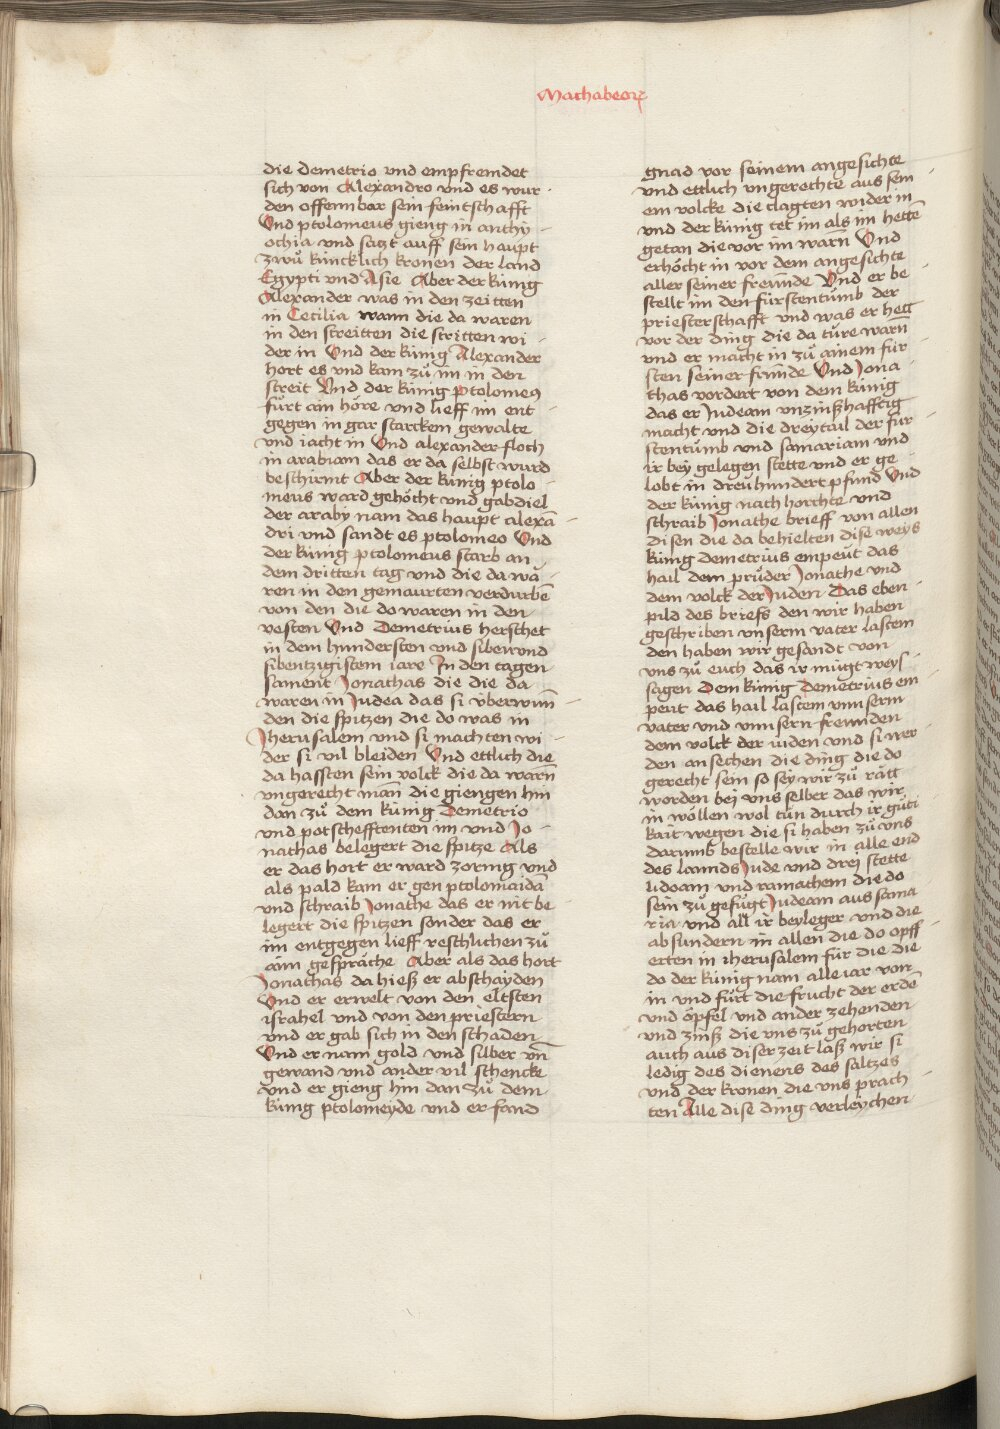 Machabeoꝝ
die demetrio vnd empfremdet
sich von Alexandro vnd es wur-
den offennbar sein feintschafft
Vnd ptolomeus gieng in anthy-
ochia vnd saczt auff sein haupt
zwu̇ kuncklich kronen der land
Egypti vnd Asie Aber der kunig
Alexander was in den zeitten
in Cecilia wann die da waren
in den streitten die stritten wi-
der in Vnd der kunig Alexander
hort es vnd kam zů im in den
streit Vnd der kunig ptolomeꝰ
fůrt ain höre vnd lieff im ent-
gegen in gar starckem gewalte
vnd iacht in Vnd alexander floch
in arabiam das er da selbst wurd
beschirmt Aber der kunig ptolo-
meus ward gehöcht vnd gabdiel
der araby nam das haupt alexā-
dri vnd sandt es ptolomeo Vnd
der kunig ptolomeus starb an
dem dritten tag vnd die da wa-
ren in den gemaurten verdurbē
von den die do waren in den
vesten Vnd Demetrius herschet
in dem hundersten vnd sibenvnd
sibentzigistem iare In den tagen
sament Jonathas die die da
waren in Judea das si vberwun̄-
den die spitzen die do was in
Jherusalem vnd si machten wi-
der si vil bleiden Vnd ettlich die
da hassten sein volck die da warn̄
vngerecht man̄ die giengen hin
dan zů dem kunig Demetrio
vnd potschefftenten im vnd Jo-
nathas belegert die spitze Als
er das hort er ward zornig vnd
als pald kam er gen ptolomaidā
vnd schraib Jonathe das er nit be-
legert die spitzen sonder das er
im entgegen lieff reschlichen zů
aim gespräche Aber als das hort
Jonathas da hieß er abschayden
Vnd er erwelt von den eltsten
israhel vnd von den priestern
vnd er gab sich in den schaden
Vnd er nam gold vnd silber vn̄
gewand vnd ander vil schencke
vnd er gieng hin dan zů dem
kunig ptolomeyde vnd er fand
gnad vor seinem angesichte
vnd ettlich vngerechte aus sein-
em volcke die clagten wider in
vnd der kunig tet im als im hettē
getan die vor im warn̄ Vnd
erhöcht in vor dem angesichte
aller seiner freunde Vnd er be
stellt im den fürstentumb der
priesterschafft vnd was er hett
vor der ding die da ture warn̄
vnd er macht in zů ainem für-
sten seiner frunde Vnd Jona-
thas vordert von dem kunig
das er Judeam vnzinßhafftig
macht vnd die dreytail der für
stentumb vnd samariam vnd
ir bey gelegen stette vnd er ge-
lobt in dreuhundert pfund Vnd
der kunig nach horchte vnd
schraib Jonathe brieff von allen
disen die da behielten dise weys
kunig demetrius empeut das
hail dem pruder Jonathe vnd
dem volck der Juden Das eben
pild des briefs den wir haben
geschriben vnserm vater lastem
den haben wir gesandt von
vns zů euch das ir mügt weys-
sagen Dem kunig Demetrius em
peut das hail lastem vnnserm
vater vnd vnnsern freunden
dem volck der iuden vnd si wer-
den ansechen die ding die do
gerecht sein so sey wir zů rätt
worden bei vns selber das wir
in wöllen wol tůn durch ir güti-
kait wegen die si haben zů vns
darumb bestelle wir in alle end
des lannds Jude vnd drei stette
lidoam vnd ramathem die do
sein zů gefůgt Judeam aus sama
ria vnd all ir beyleger vnd die
absundern in allen die do opff-
erten in iherusalem für die die
do der kunig nam alle iar von
in vnd fůrt die frucht der erdē
vnd öpfel vnd ander zehenden
vnd zinß die vns zů gehorten
auch aus diser zeit laß wir si
ledig des dienens des saltzes
vnd der kronen die vns prach-
ten Alle dise ding verleychen